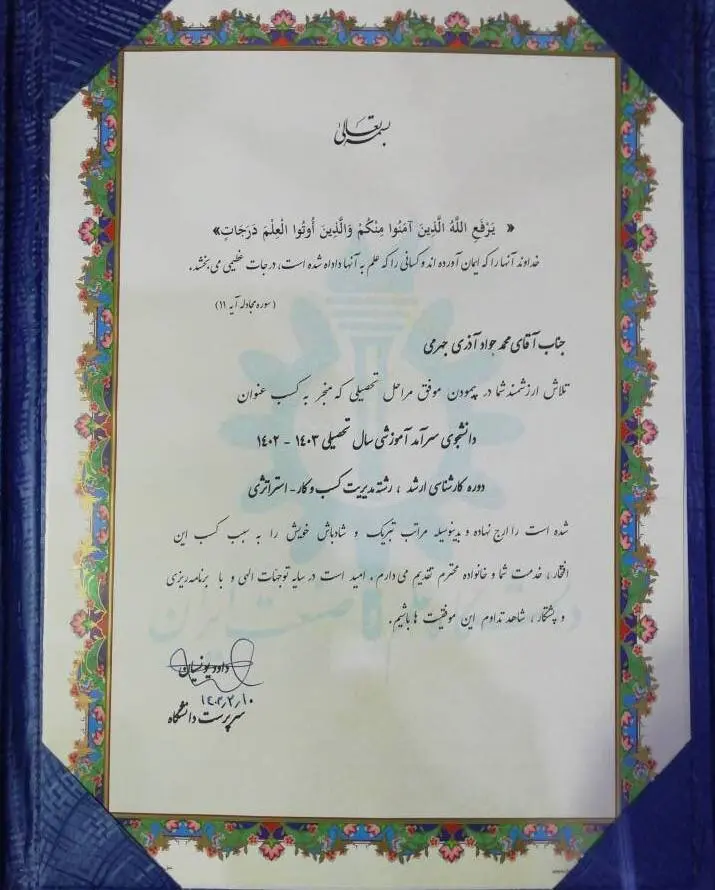 بسمه تعالی
« يَرْفَعِ اللَّهُ الَّذِينَ آمَنُوا مِنْكُمْ وَالَّذِينَ أُوتُوا الْعِلْمَ دَرَجَاتٍ»
خداوند آنها را که ایمان آورده اند و کسانی را که علم به آنها داده شده است، درجات عظیمی می بخشد.
(سوره مجادله آیه ۱۱)
جناب آقای محمد جواد آذری جهرمی
تلاش ارزشمند شما در پیمودن موفق مراحل تحصیلی که منجر به کسب عنوان
دانشجوی سرآمد آموزشی سال تحصیلی ۱۴۰۳ - ۱۴۰۲
دوره کارشناسی ارشد ، رشته مدیریت کسب و کار - استراتژی
شده است را ارج نهاده و بدینوسیله مراتب تبریک و شادباش خویش را به سبب کسب این
افتخار ، خدمت شما و خانواده محترم تقدیم می دارم . امید است در سایه توجهات الهی و با برنامه ریزی
و پشتکار ، شاهد تداوم این موفقیت ها باشیم.
داود یونسیان
سرپرست دانشگاه
علم و صنعت ایران